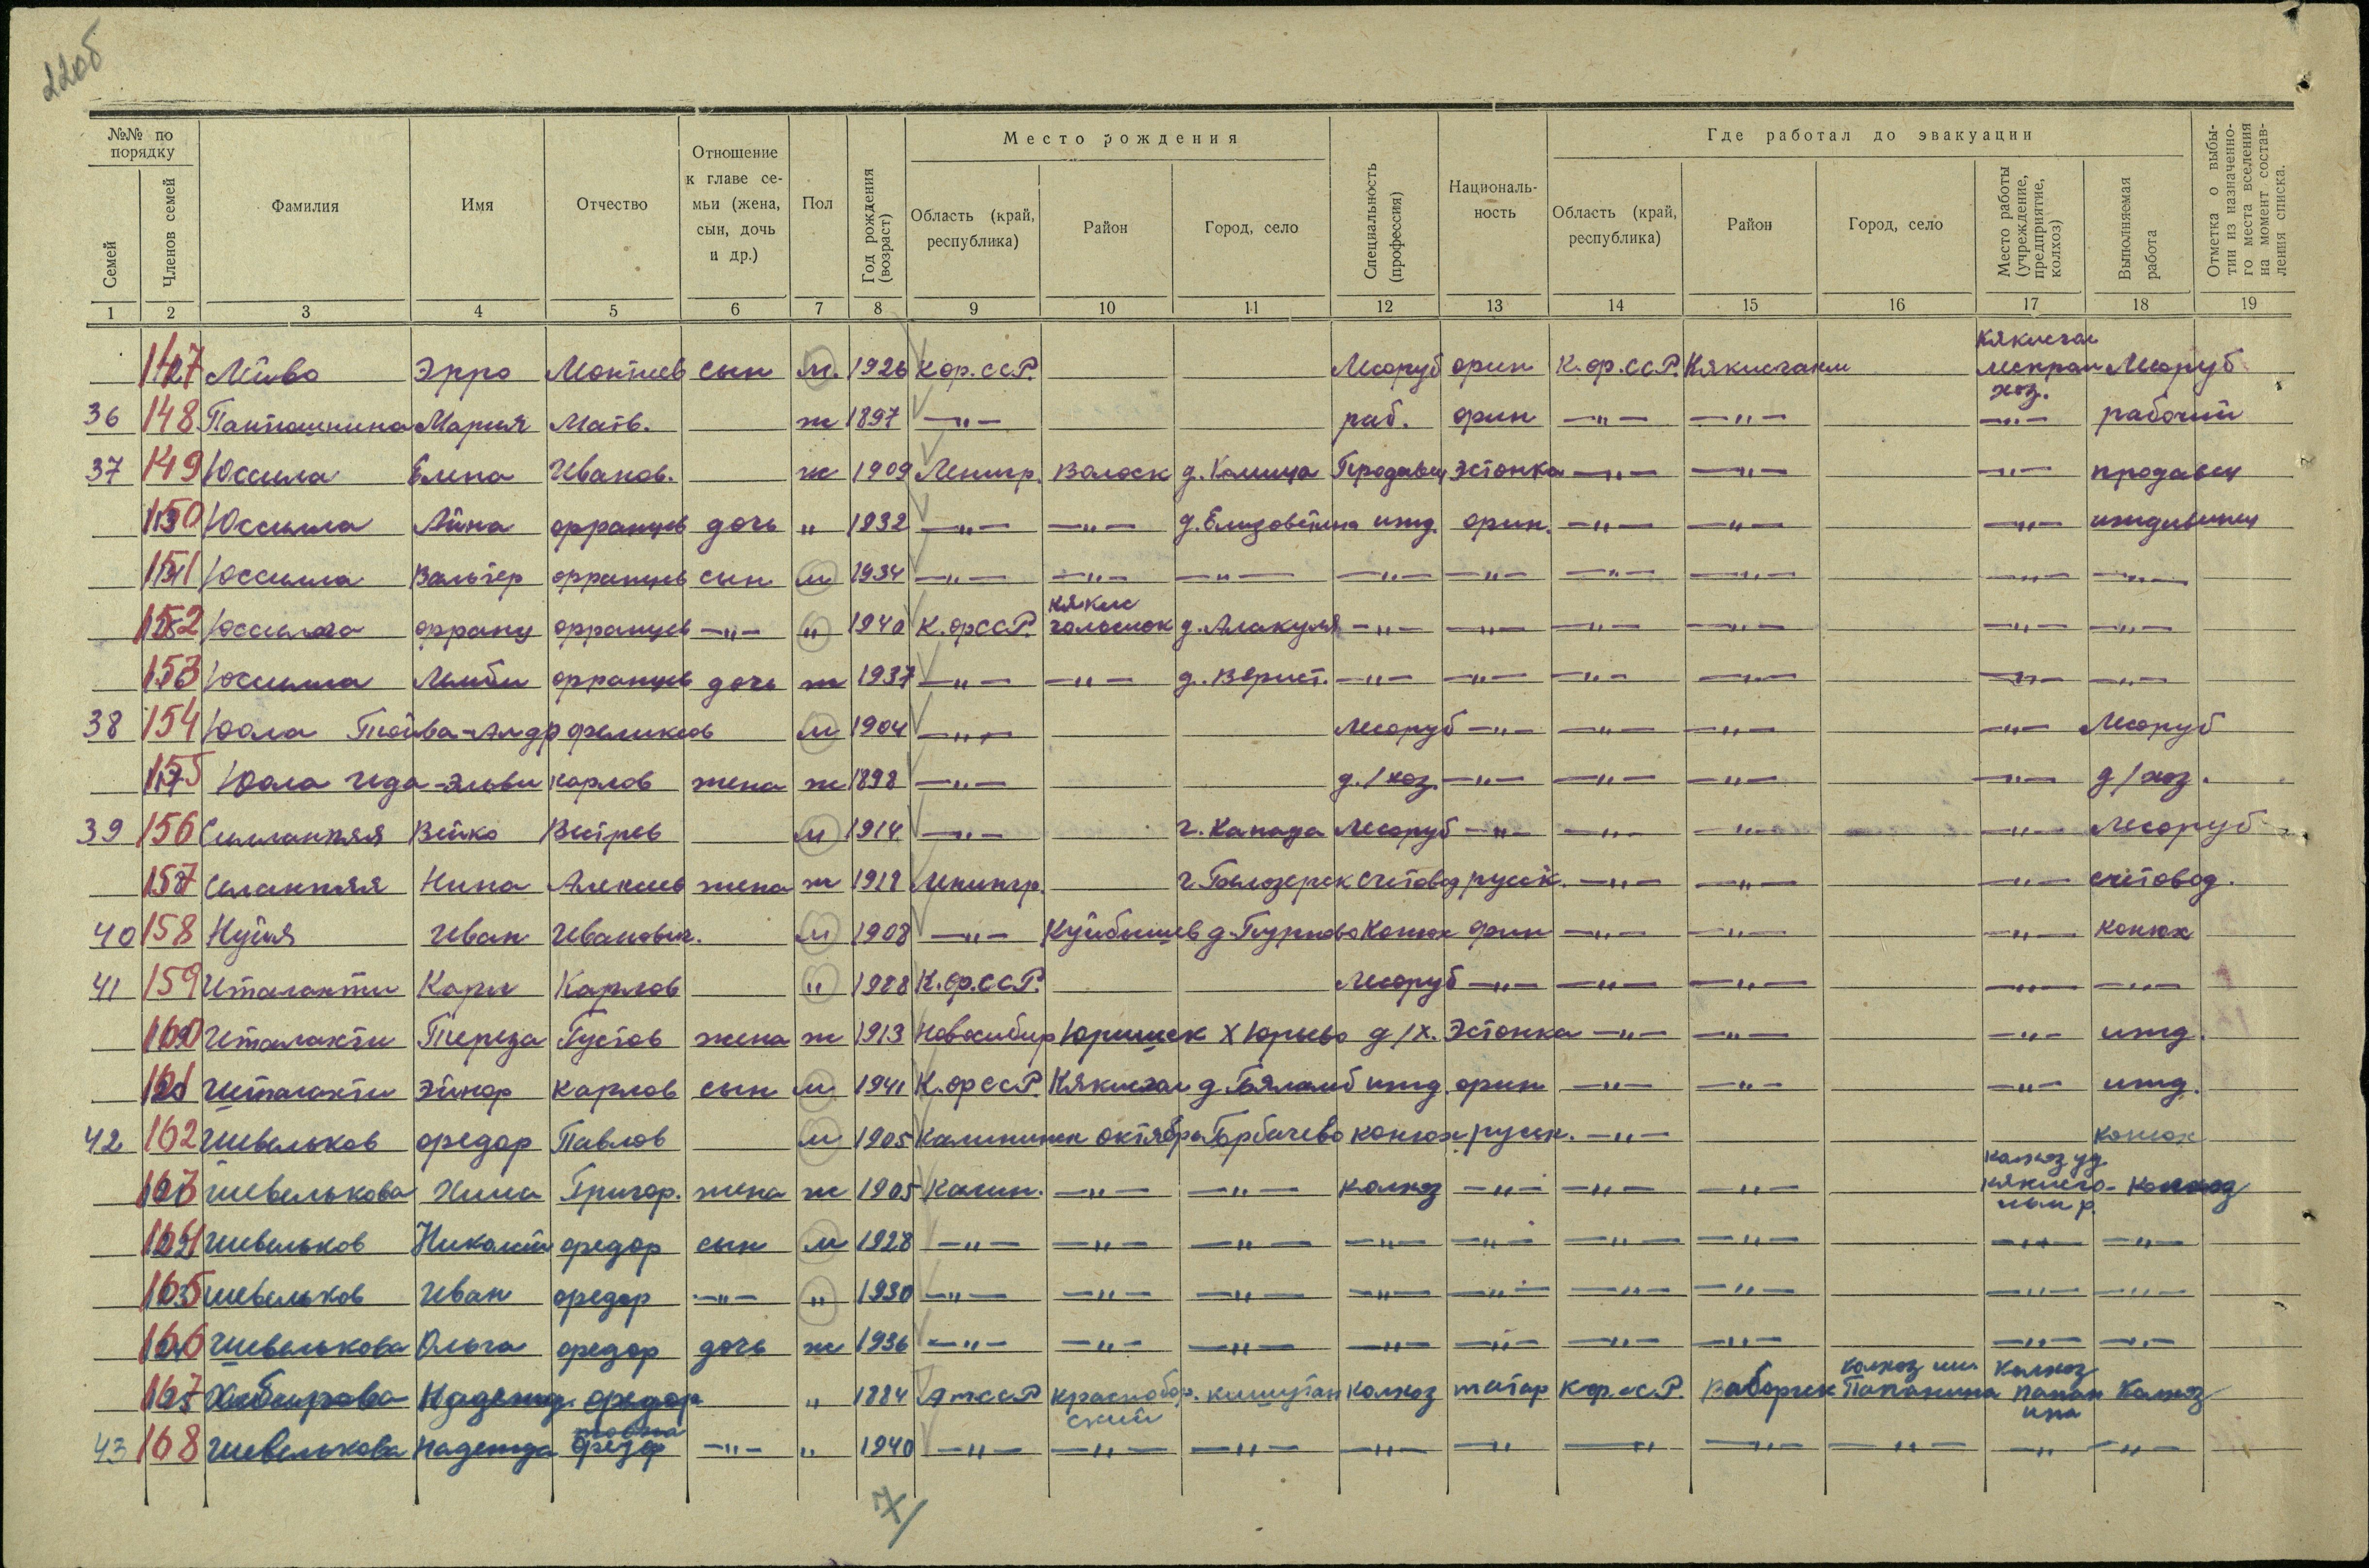 220б
№№ по порядку
Семей
Членов семей
Фамилия
Имя
Отчество
Отношение к главе семьи (жена, сын, дочь и др.)
Пол
Год рождения (возраст)
Место рождения
Область (край, республика)
Район
Город, село
Специальность (профессия)
Националь-ность
Где работал до эвакуации
Область (край, республика)
Район
Город, село
Место работы (учреждение, предприятие, колхоз)
Выполняемая работа
Отметка о выбы-тии из назначенно-го места вселения на момент состав-ления списка.
1 2 3 4 5 6 7 8 9 10 11 12 13 14 15 16 17 18 19
147 Эрро сын м. 1926 К.ф.ССР. Лесоруб фин К.ф.ССР. Лесоруб
36 148 Мария Матв. ж 1897 —"— раб. фин —"— —"— —"— рабочий
37 149 Юссила Елена Иванов. ж 1909 Ленигр. Волоск Продавец эстонка —"— —"— —"— продавец
150 Юссила Айна Францев дочь " 1932 —"— —"— д. Елизоветина ижд. фин. —"— —"— —"— иждивенец
151 Юссила Вальтер Францев сын м 1934 —"— —"— —"— —"— —"— —"— —"— —"— —"—
152 Юссила Франц Францев —"— " 1940 К.фССР. д. Алакуля —"— —"— —"— —"— —"— —"—
153 Юссила Лемби Францев дочь ж 1937 —"— —"— —"— —"— —"— —"— —"— —"—
38 154 Юола Тойва-Алдр Феликсов м 1904 —"— Лесоруб —"— —"— —"— —"— Лесоруб
155 Юола Ида-Эльви Карлов жена ж 1898 —"— д./хоз. —"— —"— —"— —"— д/хоз.
39 156 Силланпяя Вейко м 1914 —"— г. Канада Лесоруб —"— —"— —"— —"— Лесоруб
157 Силанпяя Нина Алексеев жена ж 1918 Ленингр. г Белозерск счетовод русск. —"— —"— —"— счетовод.
40 158 Нуйя Иван Иванович. м 1908 —"— Куйбышев Конюх фин —"— —"— —"— конюх
41 159 Италахти Карл Карлов " К.ф.ССР. Лесоруб —"— —"— —"— —"— —"—
160 Италахти Тереза Густов жена ж 1913 Новосибир Х Юрьево д/х. Эстонка —"— —"— —"— ижд.
161 Италахти Эйнор Карлов сын м 1941 К.фССР. ижд. фин —"— —"— —"— ижд.
42 162 Шевельков Федор Павлов м 1905 Калининск октябрь Горбачево конюх русск. —"— конюх
163 Шевелькова Григор. жена ж 1905 Калин. —"— —"— колхоз —"— —"— —"— колхоз
164 Шевельков Николай Федор сын м 1928 —"— —"— —"— —"— —"— —"— —"— —"— —"—
165 Шевельков Иван Федор —"— " 1930 —"— —"— —"— —"— —"— —"— —"— —"— —"—
166 Шевелькова Ольга Федор дочь ж 1936 —"— —"— —"— —"— —"— —"— —"— —"— —"—
167 Надежд. Федор " 1884 АтССР Краснобор-ский колхоз татар К.ф.ССР. Ваборгск колхоз им Папанина Колхоз Папанина Колхоз
43 168 Шевелькова Надежда Федор —"— " 1940 —"— —"— —"— —"— —"— —"— —"— —"— —"— —"—
7/